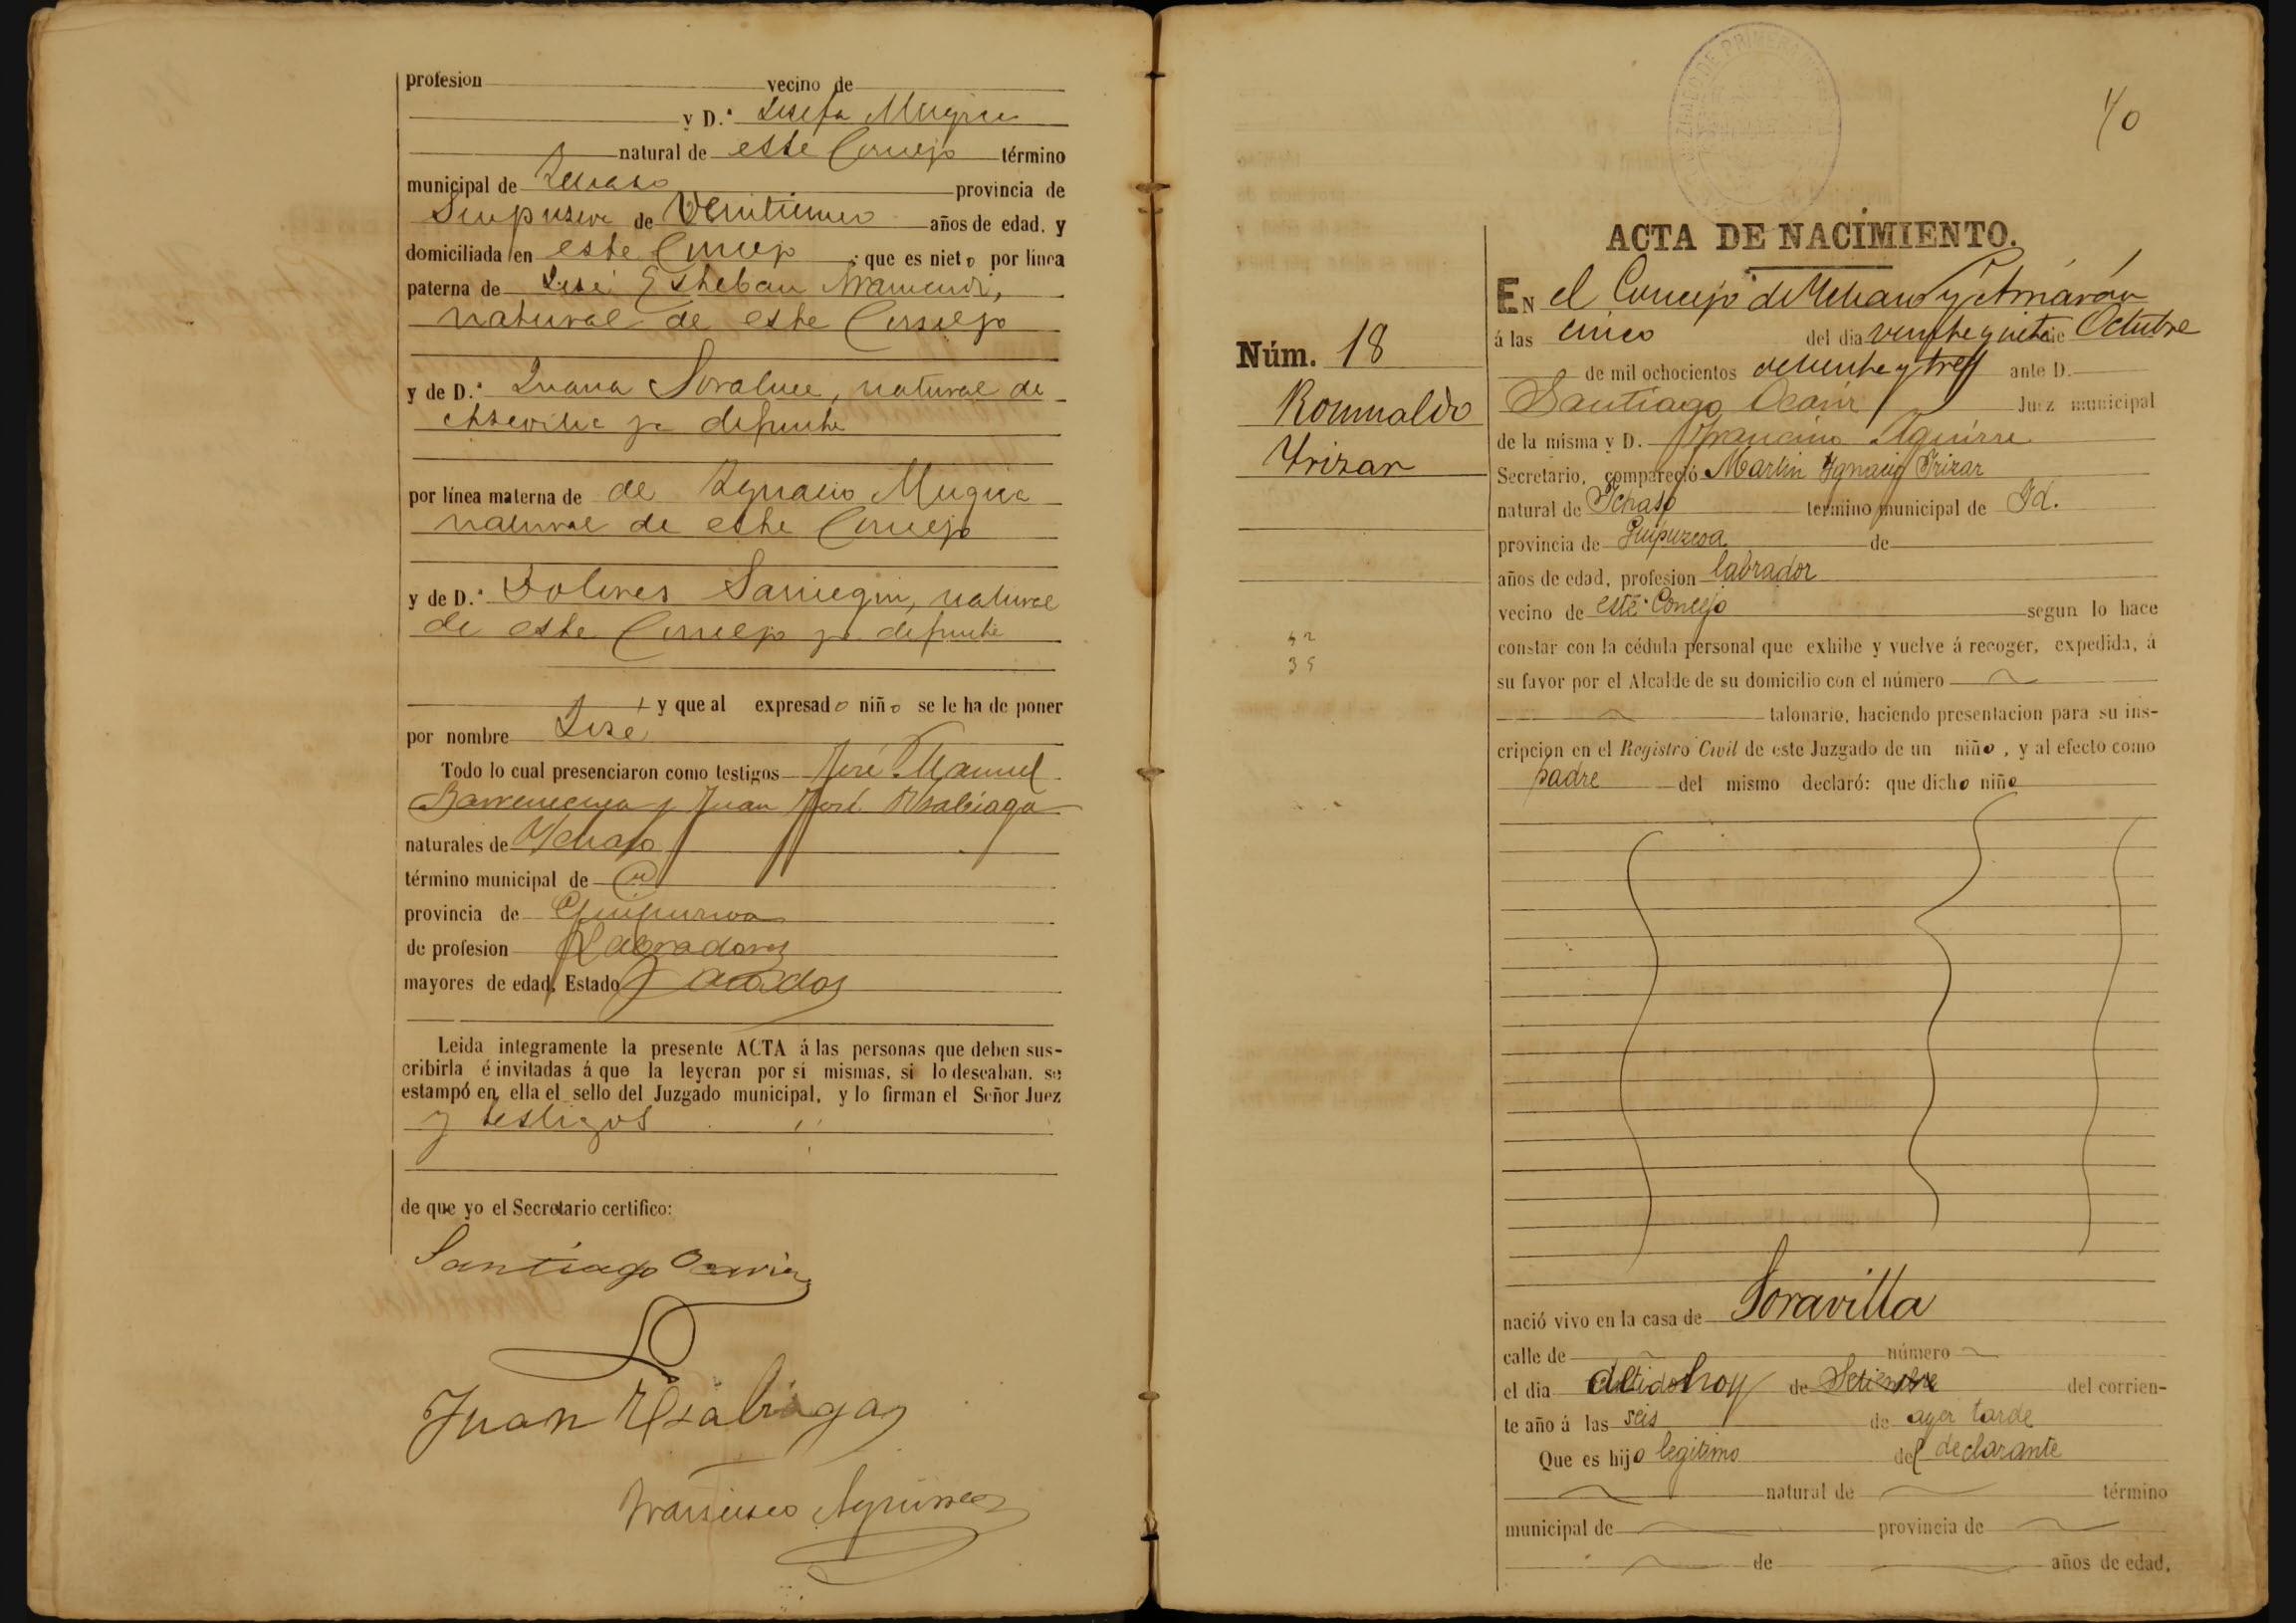 profesion vecino de
y D.ª Josefa Mugica
natural de este Concejo término
municipal de Ichaso provincia de
Guipuzcoa de Veintiun años de edad, y
domiciliada en este Concejo ; que es nieto por línea
paterna de José Esteban Aramendi,
natural de este Concejo
y de D.ª Juana Soraluce, natural de
ya difunta
por línea materna de de Ignacio Mugica
natural de este Concejo
y de D.ª Dolores Sarriegui, natural
de este Concejo ya difunta
y que al expresado niño se le ha de poner
por nombre José
Todo lo cual presenciaron como testigos José Manuel
Barrenechea y Juan José Usabiaga
naturales de Ychaso
término municipal de id
provincia de Guipuzcoa
de profesion Labradores
mayores de edad, Estado Casados
Leida integramente la presente ACTA á las personas que deben sus-
cribirla é invitadas á que la leyeran por sí mismas, si lo deseaban, se
estampó en ella el sello del Juzgado municipal, y lo firman el Señor Juez
y testigos
de que yo el Secretario certifico:
Santiago Ocariz
Juan Usabiaga
Francisco Aguirre
40
ACTA DE NACIMIENTO.
Núm. 18
Romualdo
Yrizar
EN el Concejo de Ychaso y Arriarán
á las cinco del dia veinte y siete de Octubre
de mil ochocientos ochenta y tres ante D.
Santiago Ocariz Juez municipal
de la misma y D. Francisco Aguirre
Secretario, compareció Martin Ygnacio Yrizar
natural de Ichaso termino municipal de Id.
provincia de Guipuzcoa de
años de edad, profesion labrador
vecino de este Concejo segun lo hace
constar con la cédula personal que exhibe y vuelve á recoger, expedida, á
su favor por el Alcalde de su domicilio con el número
talonario, haciendo presentacion para su ins-
cripcion en el Registro Civil de este Juzgado de un niño , y al efecto como
padre del mismo declaró: que dicho niño
52
35
nació vivo en la casa de Soravilla
calle de número
el dia de hoy de Setiembre del corrien-
te año á las seis de ayer tarde
Que es hijo legitimo del declarante
natural de término
municipal de provincia de
de años de edad,